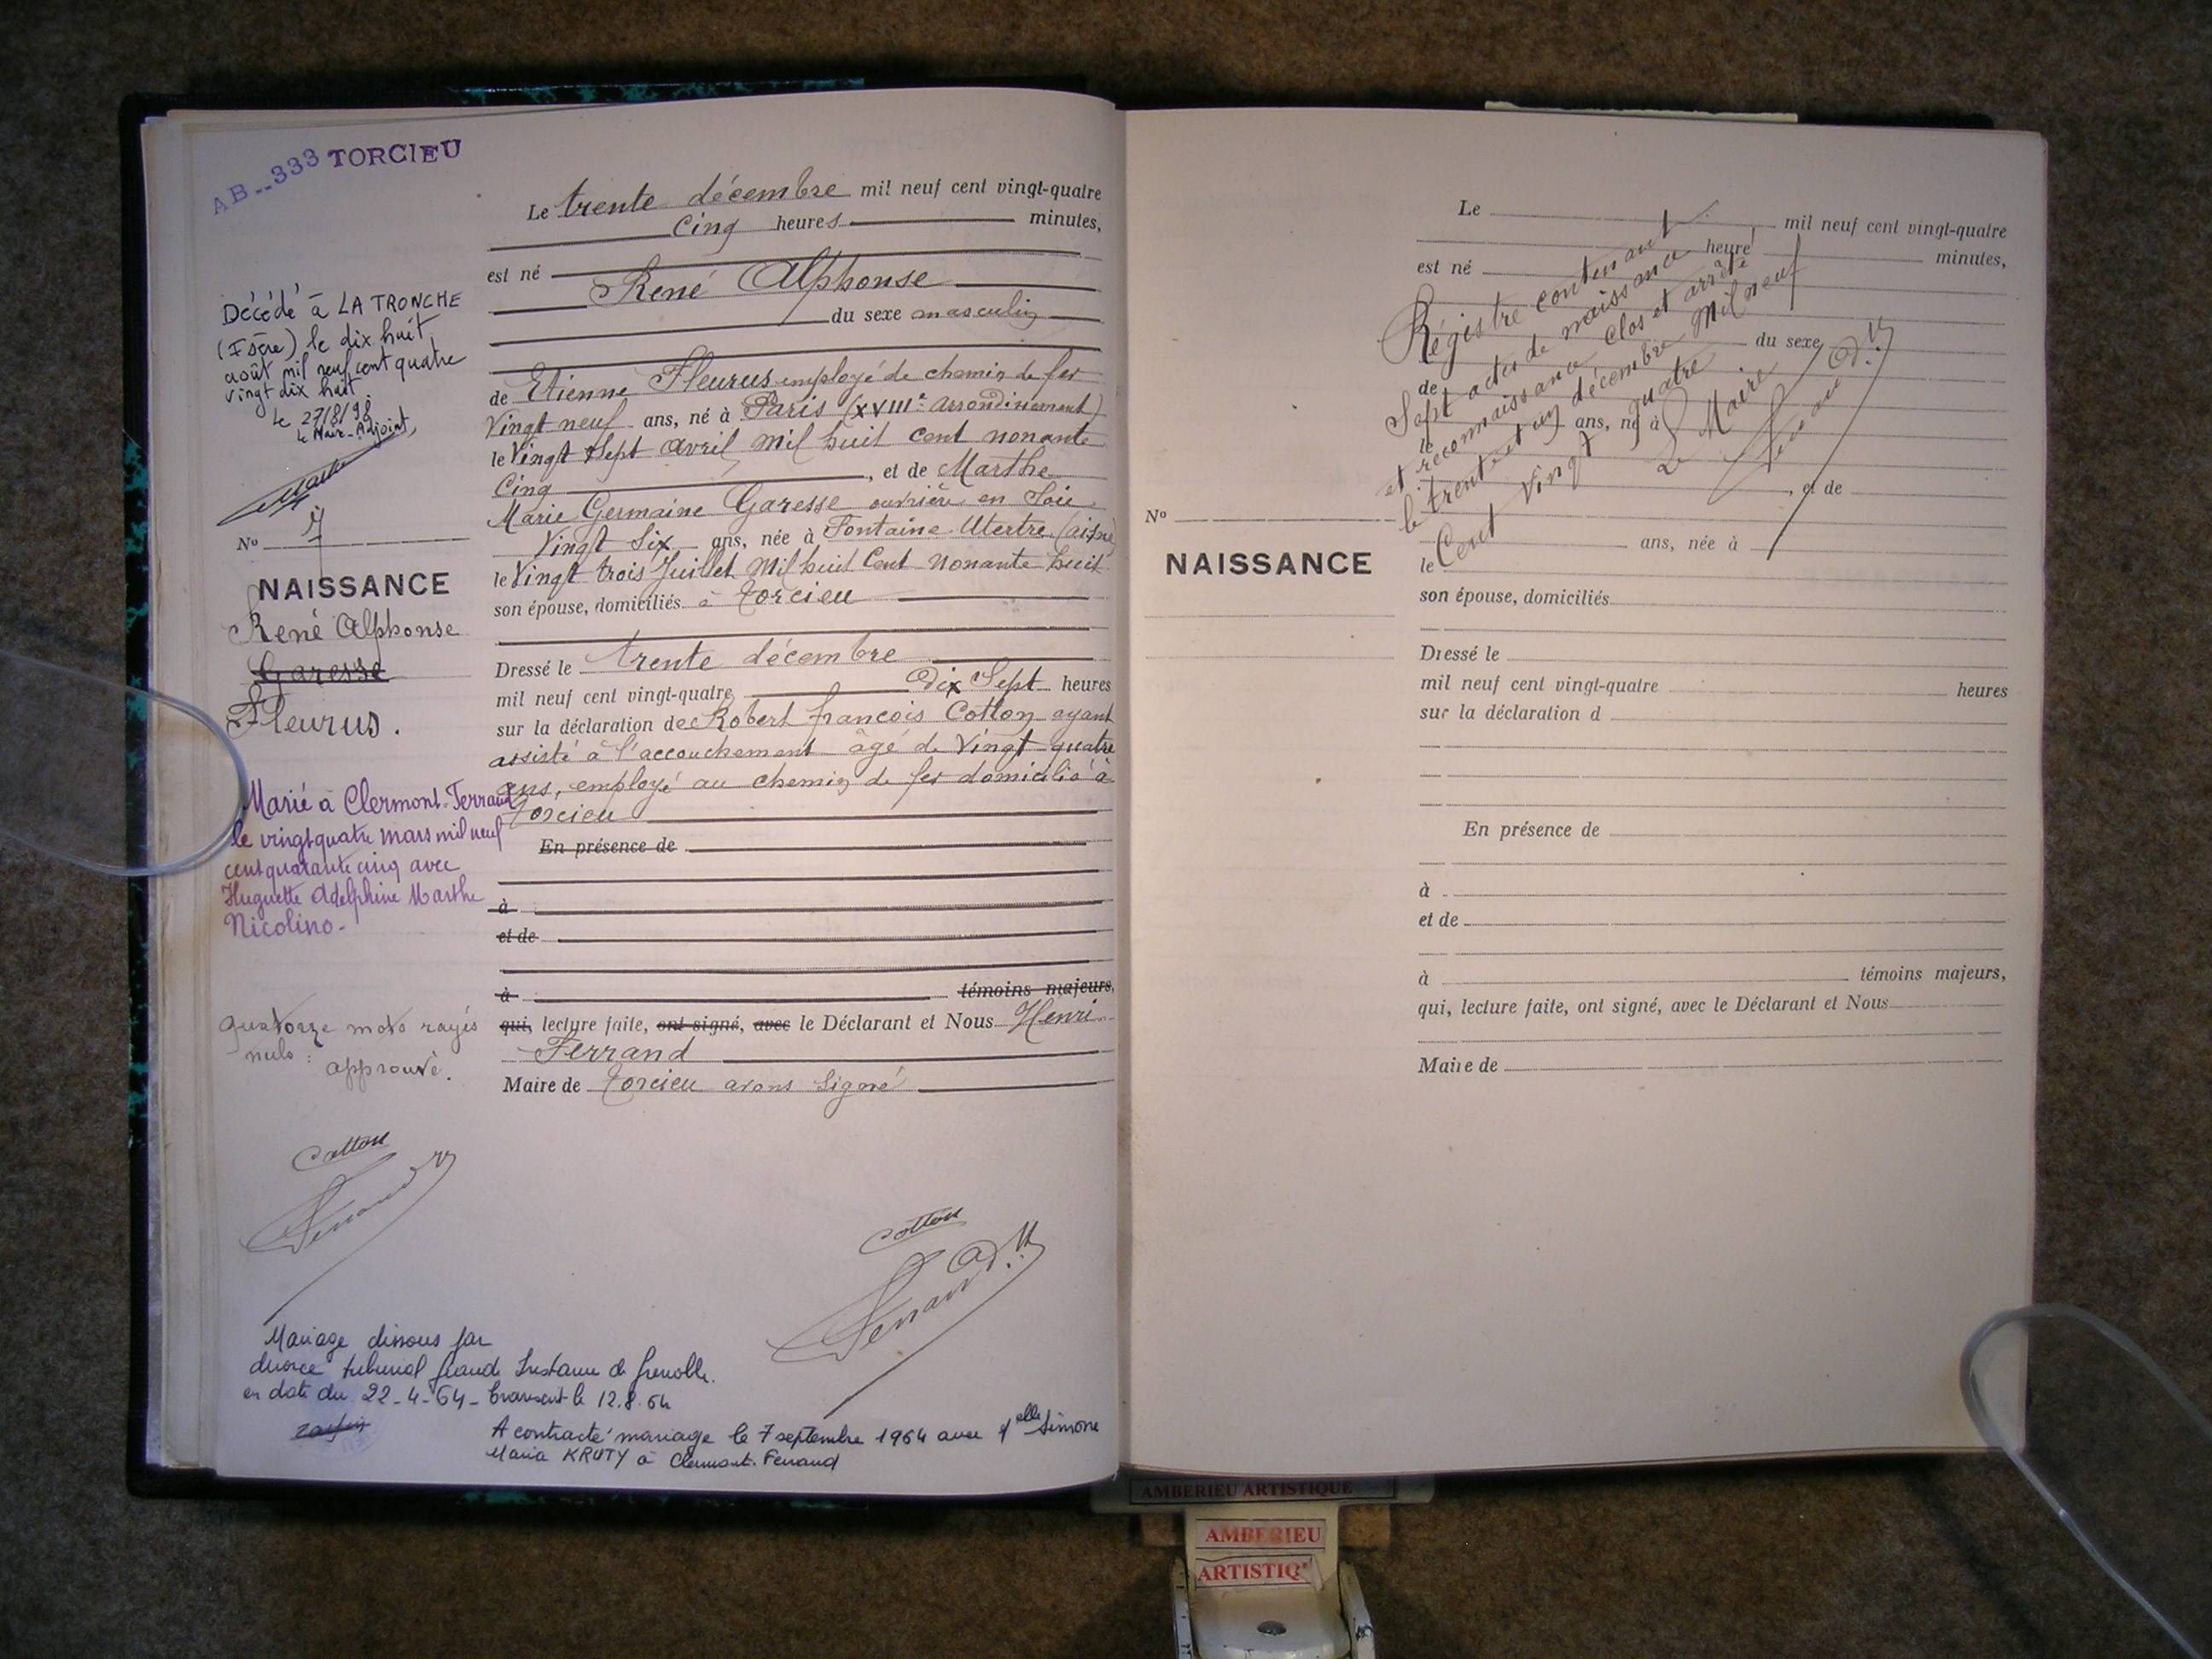 AB--333 TORCIEU
Décédé à LA TRONCHE
(Isère) le dix huit
août mil neuf cent quatre
vingt dix huit
Le 27/8/98
Le Maire-Adjoint,
No 7
NAISSANCE
René Alphonse
Garesse
Fleurus.
Marié à Clermont-Ferrand
le vingt quatre mars mil neuf
cent quarante cinq avec
Huguette Adelphine Marthe
Nicolino-
quatorze mots rayés
nuls :
approuvé.
Le trente décembre mil neuf cent vingt-quatre
Cinq heures minutes,
est né
René Alphonse
du sexe masculin
de Etienne Fleurus employé de chemin de fer
Vingt neuf ans, né à Paris (XVIIIe arrondissement)
le Vingt Sept avril mil huit cent nonante
Cinq , et de Marthe
Marie Germaine Garesse ouvrière en Soie
Vingt Six ans, née à Fontaine-Utertre (aisne)
le Vingt trois Juillet Mil huit Cent Nonante huit
son épouse, domiciliés à Torcieu
Dressé le trente décembre
mil neuf cent vingt-quatre Dix Sept heures
sur la déclaration de Robert françois Cotton ayant
assisté à l'accouchement âgé de Vingt quatre
ans, employé au chemin de fer domicilié à
Torcieu
En présence de
à
et de
à témoins majeurs,
qui, lecture faite, ont signé, avec le Déclarant et Nous Henri
Ferrand
Maire de Torcieu avons Signé
Cotton
Ferrand
Cotton
Ferrand
Mariage dissous par
divorce tribunal Grande Instance de Grenoble.
en date du 22-4-64- transcrit le 12.8.64
A contracté mariage le 7 septembre 1964 avec Melle Simone
Maria KRUTY à Clermont-Ferrand
Le mil neuf cent vingt-quatre
heure minutes,
est né
du sexe
de
ans, né à
le
, et de
ans, née à
le
Régistre contenant
Sept actes de naissance
et reconnaissance Clos et arrêté
le trente et un décembre Mil neuf
Cent Vingt quatre
Le Maire
Ferrand
No
NAISSANCE
son épouse, domiciliés
Dressé le
mil neuf cent vingt-quatre heures
sur la déclaration d
En présence de
à
et de
à témoins majeurs,
qui, lecture faite, ont signé, avec le Déclarant et Nous
Maire de
AMBERIEU ARTISTIQUE
AMBERIEU
ARTISTIQ